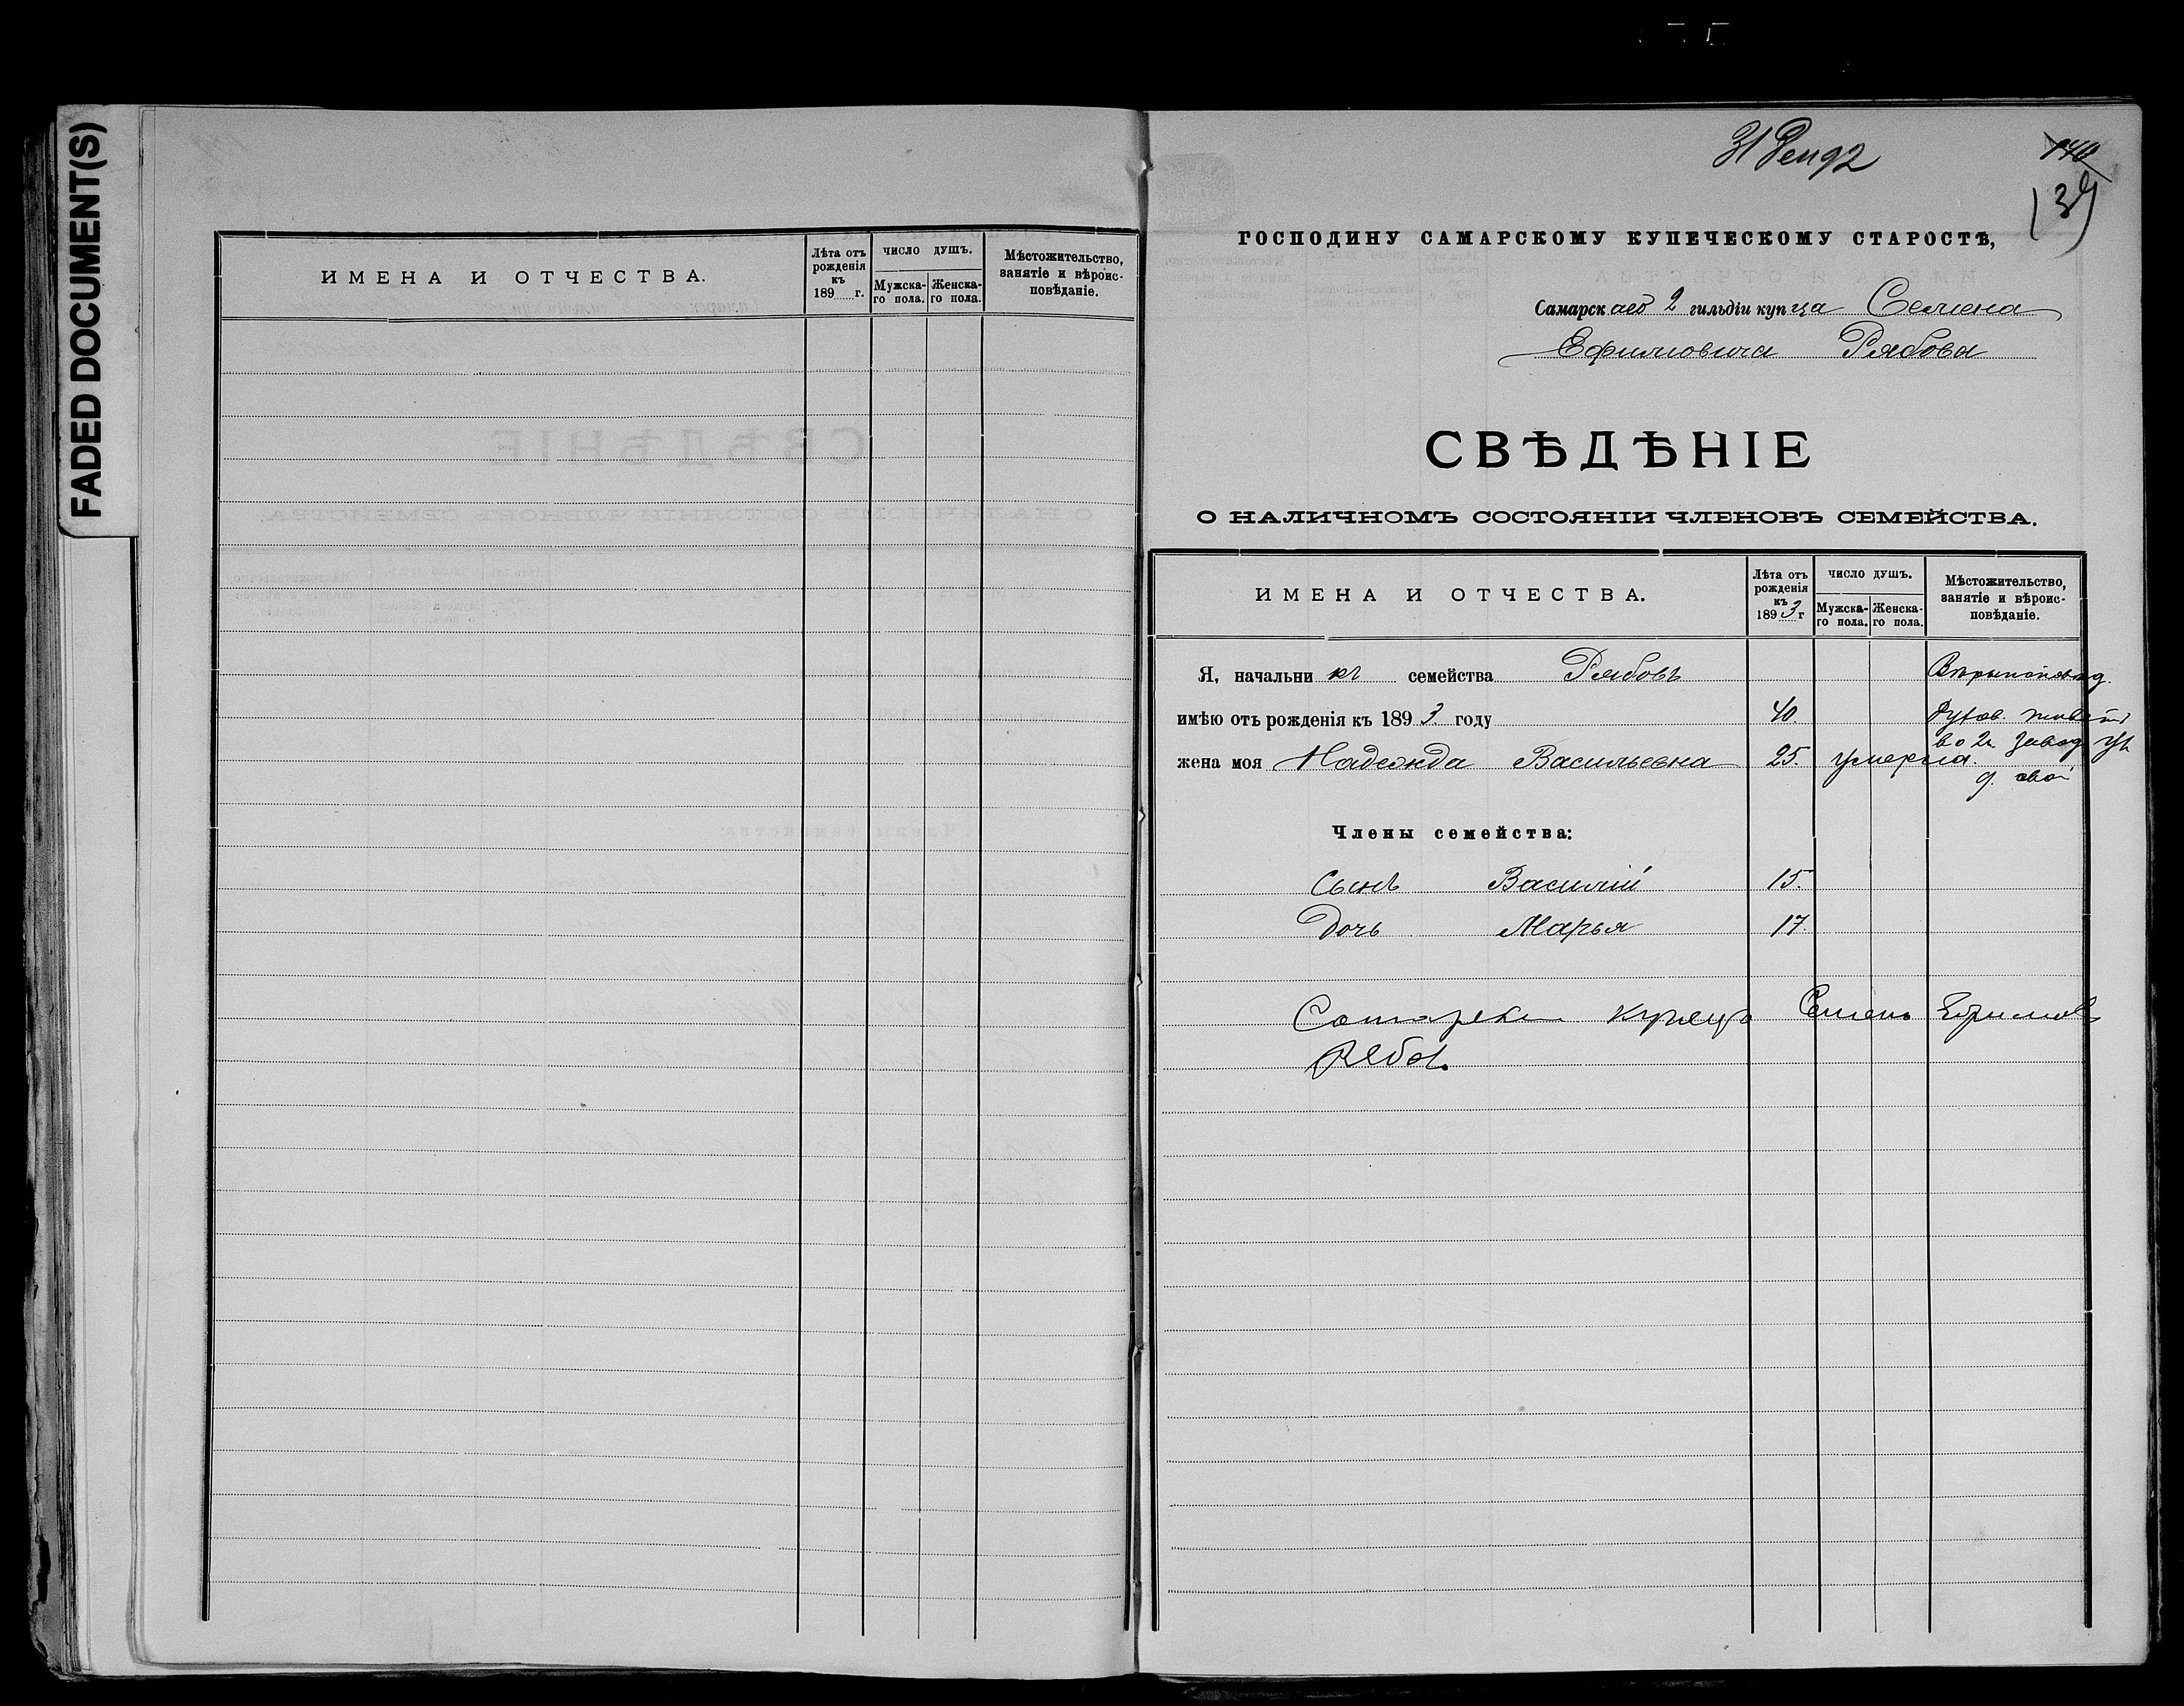 FADED DOCUMENT(S)
ИМЕНА И ОТЧЕСТВА.
Лѣта отъ рожденія къ 189 г.
ЧИСЛО ДУШЪ.
Мужска-го пола.
Женска-го пола.
Мѣстожительство, занятіе и вѣроис-повѣданіе.
31 Дек 92
140
139
ГОСПОДИНУ САМАРСКОМУ КУПЕЧЕСКОМУ СТАРОСТѢ,
Самарскаго 2 гильдіи купца Семена
Ефимовича Рябова
СВѢДѢНІЕ
О НАЛИЧНОМЪ СОСТОЯНІИ ЧЛЕНОВЪ СЕМЕЙСТВА.
ИМЕНА И ОТЧЕСТВА.
Лѣта отъ рожденія къ 1893 г
ЧИСЛО ДУШЪ.
Мужска-го пола.
Женска-го пола.
Мѣстожительство, занятіе и вѣроис-повѣданіе.
Я, начальникъ семейства Рябовъ
имѣю отъ рожденія къ 1893 году 40.
жена моя Надежда Васильевна 25. умерла.
во 2й
д. свой
Члены семейства:
Сынъ Василій 15.
Дочь Марья 17.
Самарски купецъ Семенъ Ефимовъ
Рябов.